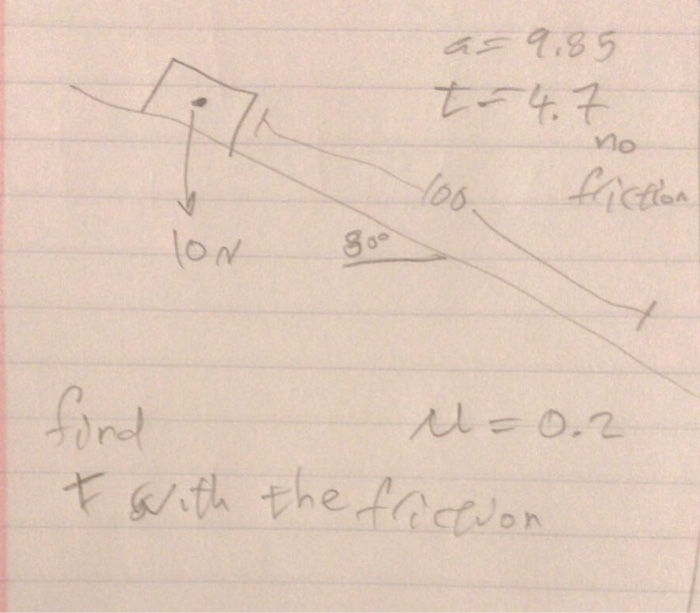 a = 9.85
t = 4.7
no
friction
100
10N
80°
find
μ = 0.2
t with the friction